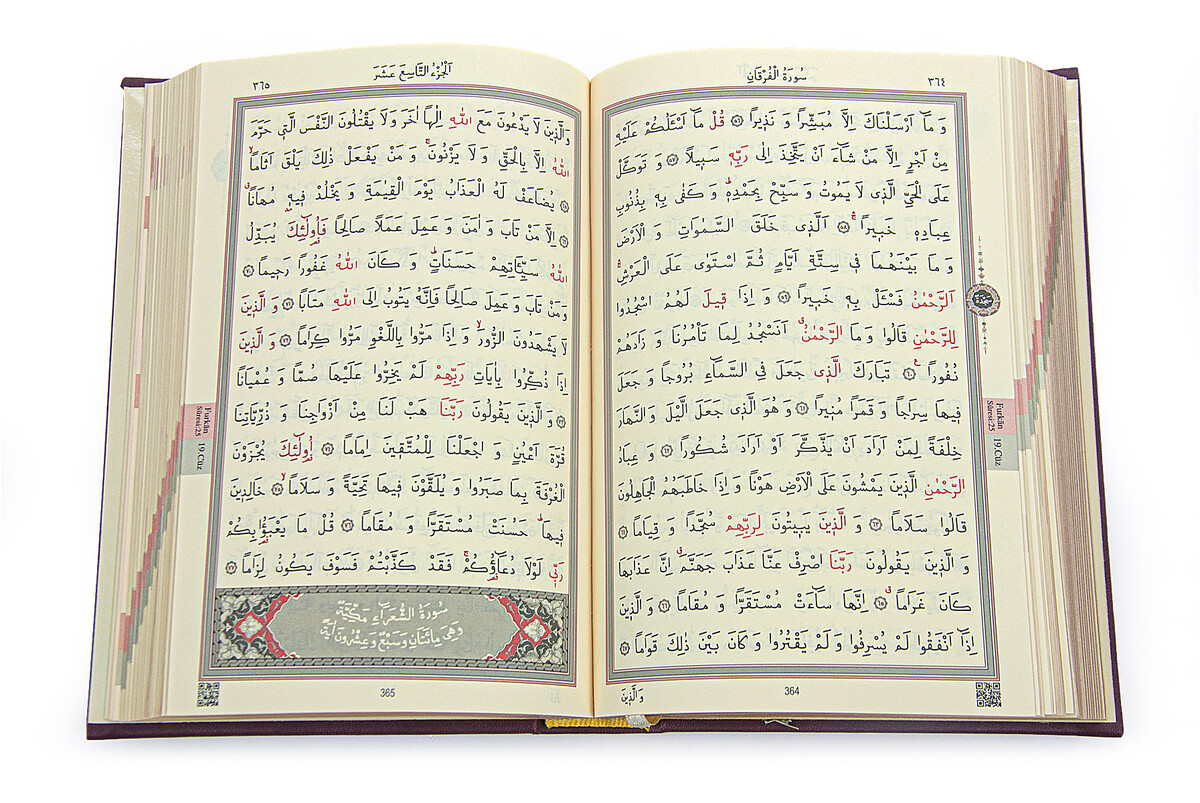 ٣٦٤
سُورَةُ الْفُرْقَانِ
وَ مَٓا اَرْسَلْنَاكَ اِلَّا مُبَشِّرًا وَ نَذٖيرًا ﴿٥٦﴾ قُلْ مَٓا اَسْـَٔلُكُمْ عَلَيْهِ
مِنْ اَجْرٍ اِلَّا مَنْ شَٓاءَ اَنْ يَتَّخِذَ اِلٰى رَبِّهٖ سَبٖيلًا ﴿٥٧﴾ وَ تَوَكَّلْ
عَلَى الْحَيِّ الَّذٖى لَا يَمُوتُ وَ سَبِّحْ بِحَمْدِهٖؕ وَ كَفٰى بِهٖ بِذُنُوبِ
عِبَادِهٖ خَبٖيرًا ﴿٥٨﴾ اَلَّذٖى خَلَقَ السَّمٰوَاتِ وَ الْاَرْضَ
وَ مَا بَيْنَهُمَا فٖى سِتَّةِ اَيَّامٍ ثُمَّ اسْتَوٰى عَلَى الْعَرْشِ
اَلرَّحْمٰنُ فَسْـَٔلْ بِهٖ خَبٖيرًا ﴿٥٩﴾ وَ اِذَا قٖيلَ لَهُمُ اسْجُدُوا
لِلرَّحْمٰنِ قَالُوا وَ مَا الرَّحْمٰنُ اَنَسْجُدُ لِمَا تَاْمُرُنَا وَ زَادَهُمْ
نُفُورًا ﴿٦٠﴾ تَبَارَكَ الَّذٖى جَعَلَ فِى السَّمَٓاءِ بُرُوجًا وَ جَعَلَ
فٖيهَا سِرَاجًا وَ قَمَرًا مُنٖيرًا ﴿٦١﴾ وَ هُوَ الَّذٖى جَعَلَ الَّيْلَ وَ النَّهَارَ
خِلْفَةً لِمَنْ اَرَادَ اَنْ يَذَّكَّرَ اَوْ اَرَادَ شُكُورًا ﴿٦٢﴾ وَ عِبَادُ
الرَّحْمٰنِ الَّذٖينَ يَمْشُونَ عَلَى الْاَرْضِ هَوْنًا وَ اِذَا خَاطَبَهُمُ الْجَاهِلُونَ
قَالُوا سَلَامًا ﴿٦٣﴾ وَ الَّذٖينَ يَبٖيتُونَ لِرَبِّهِمْ سُجَّدًا وَ قِيَامًا ﴿٦٤﴾
وَ الَّذٖينَ يَقُولُونَ رَبَّنَا اصْرِفْ عَنَّا عَذَابَ جَهَنَّمَ اِنَّ عَذَابَهَا
كَانَ غَرَامًا ﴿٦٥﴾ اِنَّهَا سَٓاءَتْ مُسْتَقَرًّا وَ مُقَامًا ﴿٦٦﴾ وَ الَّذٖينَ
اِذَٓا اَنْفَقُوا لَمْ يُسْرِفُوا وَ لَمْ يَقْتُرُوا وَ كَانَ بَيْنَ ذٰلِكَ قَوَامًا ﴿٦٧﴾
Furkân
Sûresi:25
19.Cüz
364
وَ الَّذٖينَ
اَلْجُزْءُ التَّاسِعَ عَشَرَ
٣٦٥
وَ الَّذٖينَ لَا يَدْعُونَ مَعَ اللّٰهِ اِلٰهًا اٰخَرَ وَ لَا يَقْتُلُونَ النَّفْسَ الَّتٖى حَرَّمَ
اللّٰهُ اِلَّا بِالْحَقِّ وَ لَا يَزْنُونَ وَ مَنْ يَفْعَلْ ذٰلِكَ يَلْقَ اَثَامًا
﴿٦٨﴾ يُضَاعَفْ لَهُ الْعَذَابُ يَوْمَ الْقِيٰمَةِ وَ يَخْلُدْ فٖيهٖ مُهَانًا
﴿٦٩﴾ اِلَّا مَنْ تَابَ وَ اٰمَنَ وَ عَمِلَ عَمَلًا صَالِحًا فَاُولٰٓئِكَ يُبَدِّلُ
اللّٰهُ سَيِّـَٔاتِهِمْ حَسَنَاتٍ وَ كَانَ اللّٰهُ غَفُورًا رَحٖيمًا ﴿٧٠﴾
وَ مَنْ تَابَ وَ عَمِلَ صَالِحًا فَاِنَّهُ يَتُوبُ اِلَى اللّٰهِ مَتَابًا ﴿٧١﴾ وَ الَّذٖينَ
لَا يَشْهَدُونَ الزُّورَ وَ اِذَا مَرُّوا بِاللَّغْوِ مَرُّوا كِرَامًا ﴿٧٢﴾ وَ الَّذٖينَ
اِذَا ذُكِّرُوا بِاٰيَاتِ رَبِّهِمْ لَمْ يَخِرُّوا عَلَيْهَا صُمًّا وَ عُمْيَانًا
﴿٧٣﴾ وَ الَّذٖينَ يَقُولُونَ رَبَّنَا هَبْ لَنَا مِنْ اَزْوَاجِنَا وَ ذُرِّيَّاتِنَا
قُرَّةَ اَعْيُنٍ وَ اجْعَلْنَا لِلْمُتَّقٖينَ اِمَامًا ﴿٧٤﴾ اُولٰٓئِكَ يُجْزَوْنَ
الْغُرْفَةَ بِمَا صَبَرُوا وَ يُلَقَّوْنَ فٖيهَا تَحِيَّةً وَ سَلَامًا ﴿٧٥﴾ خَالِدٖينَ
فٖيهَا حَسُنَتْ مُسْتَقَرًّا وَ مُقَامًا ﴿٧٦﴾ قُلْ مَا يَعْبَؤُا بِكُمْ
رَبّٖى لَوْلَا دُعَٓاؤُكُمْ فَقَدْ كَذَّبْتُمْ فَسَوْفَ يَكُونُ لِزَامًا ﴿٧٧﴾
سُورَةُ الشُّعَرَٓاءِ مَكِّيَّةٌ
وَ هِىَ مِائَتَانِ وَ سَبْعٌ وَ عِشْرُونَ اٰيَةً
Furkân
Sûresi:25
19.Cüz
365